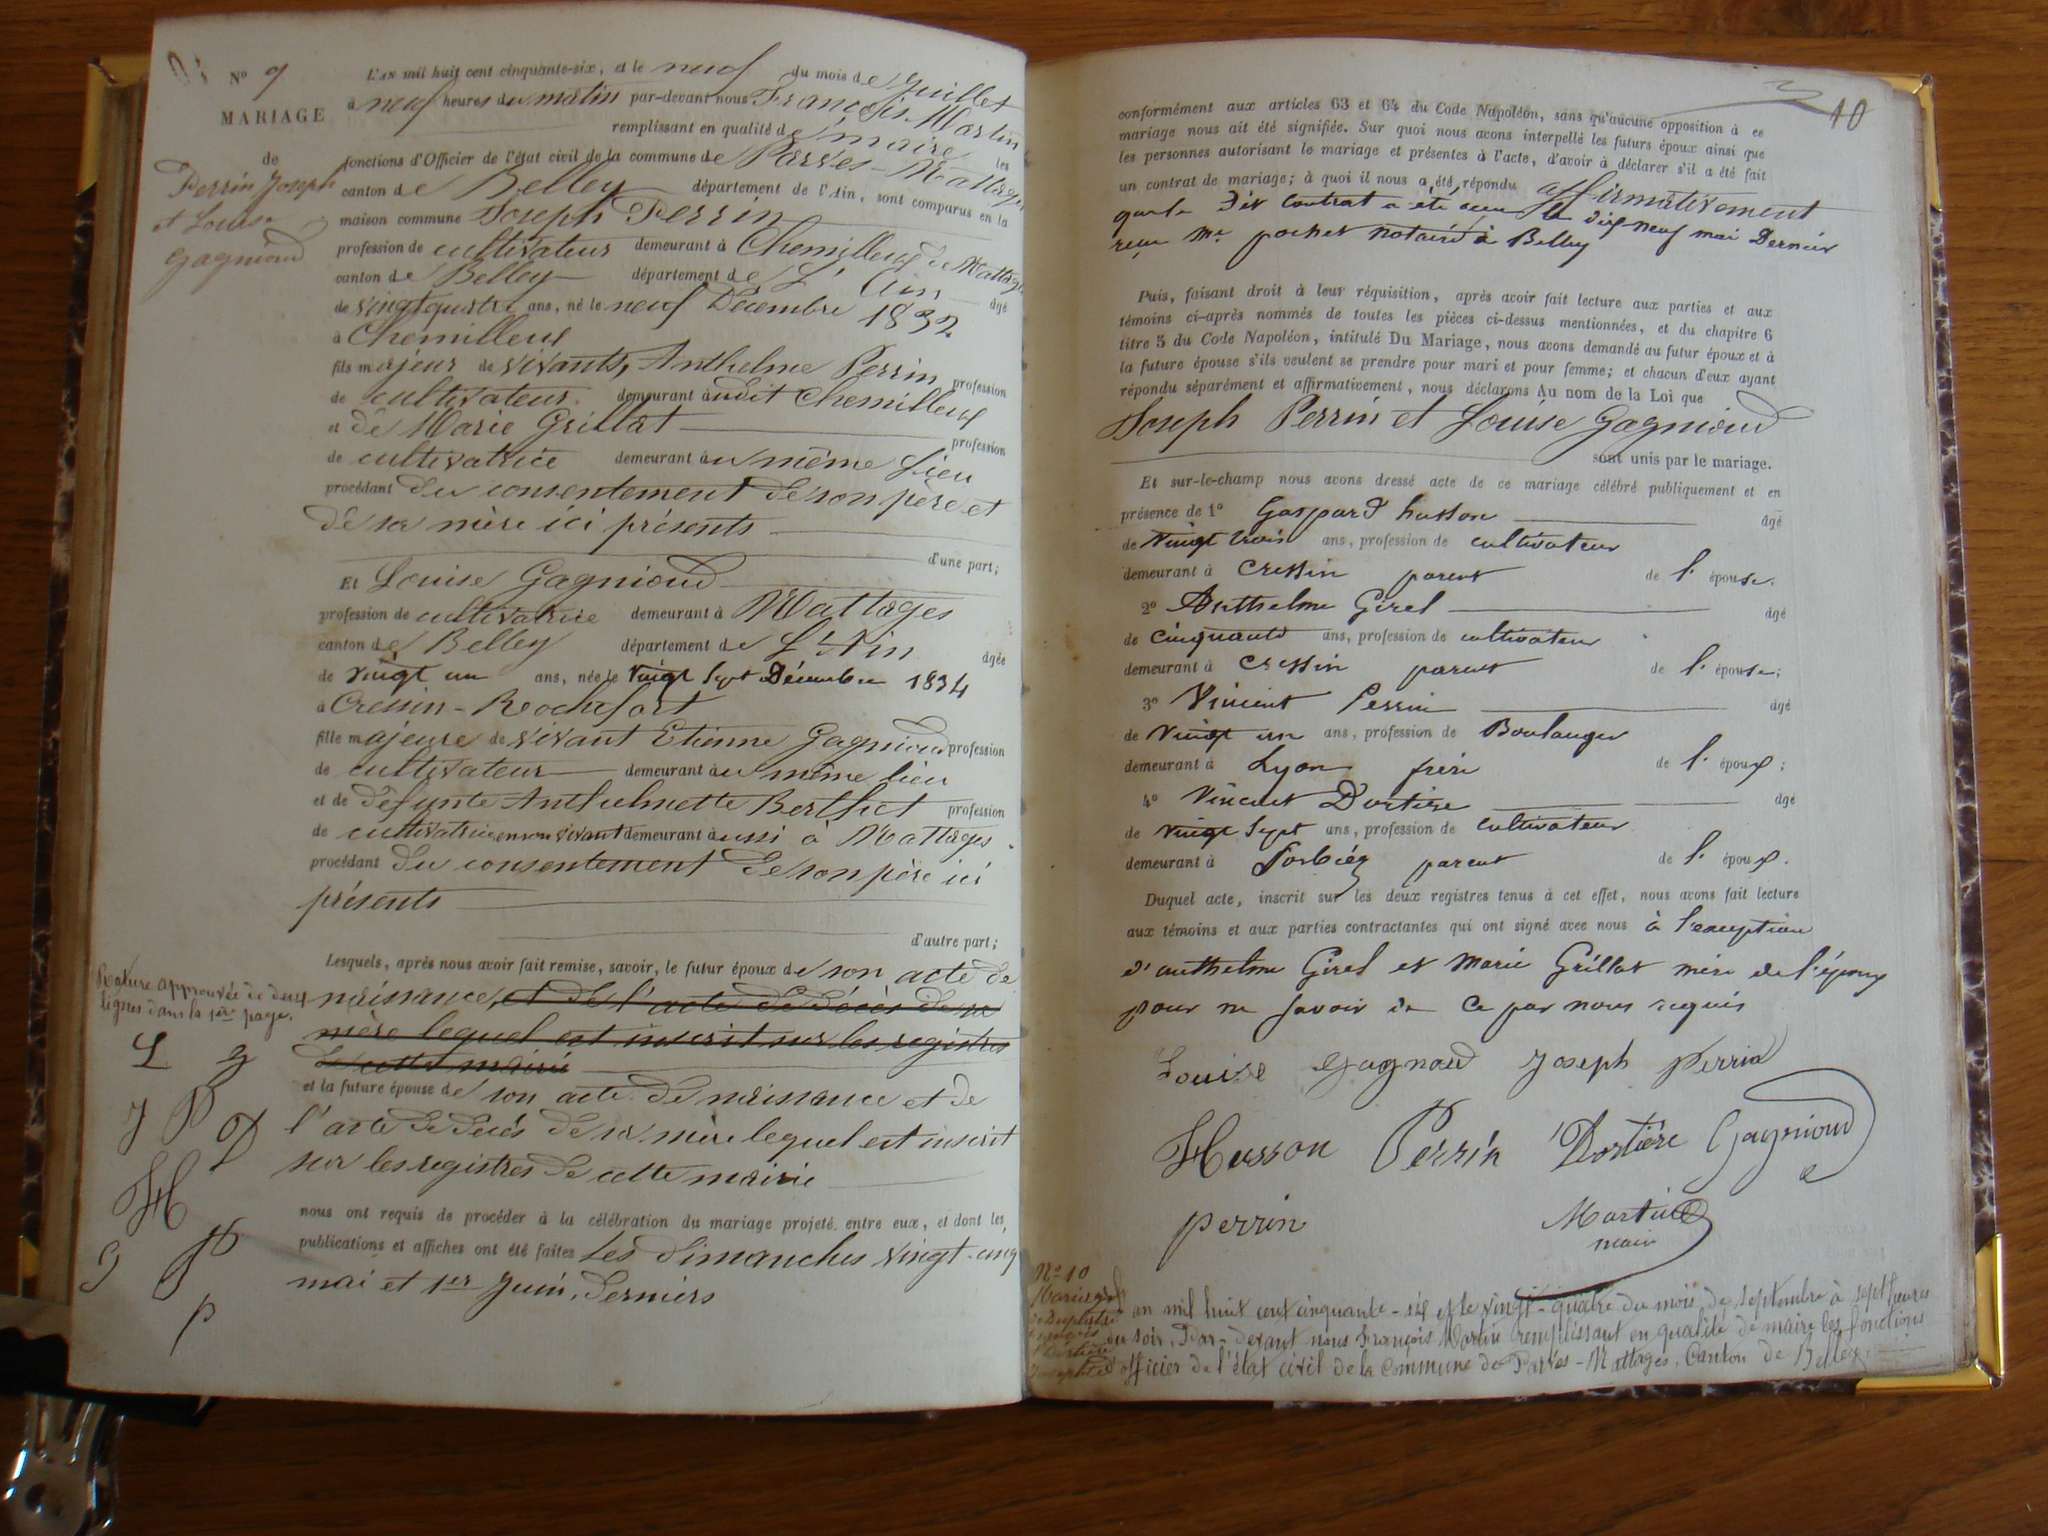 N° 9
MARIAGE
de
Perrin Joseph
et Louise
Gagnioud
L'an mil huit cent cinquante-six, et le neuf du mois de Juillet
à neuf heures du matin par-devant nous François Martin
remplissant en qualité de maire les
fonctions d'Officier de l'état civil de la commune de Parves-Nattages
canton de Belley département de l'Ain, sont comparus en la
maison commune Joseph Perrin
profession de cultivateur demeurant à Chemilleux de Nattages
canton de Belley département de L'Ain âgé
de vingt quatre ans, né le neuf Décembre 1832
à Chemilleux
fils majeur de vivants, Anthelme Perrin profession
de cultivateur demeurant audit Chemilleux
et de Marie Grillat profession
de cultivatrice demeurant au même lieu
procédant du consentement de son père et
de sa mère ici présents
d'une part;
Et Louise Gagnioud
profession de cultivatrice demeurant à Nattages
canton de Belley département de L'Ain âgée
de vingt un ans, née le vingt sept Décembre 1834
à Cressin-Rochefort
fille majeure de vivant Etienne Gagnioud profession
de cultivateur demeurant au même lieu
et de défunte Anthelmette Berthet profession
de cultivatrice en son vivant demeurant aussi à Nattages
procédant du consentement de son père ici
présents
d'autre part;
Lesquels, après nous avoir fait remise, savoir, le futur époux de son acte de
naissance, et de l'acte de décès de sa
mère lequel est inscrit sur les registres
de cette mairie
et la future épouse de son acte de naissance et de
l'acte de décès de sa mère lequel est inscrit
sur les registres de cette mairie
nous ont requis de procéder à la célébration du mariage projeté entre eux, et dont les
publications et affiches ont été faites les dimanches vingt-cinq
mai et 1er Juin, derniers
Rature approuvée de deux
lignes dans la 1ère page.
L g
J P D
H
G P
P
10
conformément aux articles 63 et 64 du Code Napoléon, sans qu'aucune opposition à ce
mariage nous ait été signifiée. Sur quoi nous avons interpellé les futurs époux ainsi que
les personnes autorisant le mariage et présentes à l'acte, d'avoir à déclarer s'il a été fait
un contrat de mariage; à quoi il nous a été répondu affirmativement
que le dit contrat a été le dix neuf mai Dernier
reçu Me pochet notaire à Belley
Puis, faisant droit à leur réquisition, après avoir fait lecture aux parties et aux
témoins ci-après nommés de toutes les pièces ci-dessus mentionnées, et du chapitre 6
titre 5 du Code Napoléon, intitulé Du Mariage, nous avons demandé au futur époux et à
la future épouse s'ils veulent se prendre pour mari et pour femme; et chacun d'eux ayant
répondu séparément et affirmativement, nous déclarons Au nom de la Loi que
Joseph Perrin et Louise Gagnioud
sont unis par le mariage.
Et sur-le-champ nous avons dressé acte de ce mariage célébré publiquement et en
présence de 1° Gaspard husson âgé
de vingt trois ans, profession de cultivateur
demeurant à Cressin parent de l'épouse.
2° Anthelme Girel âgé
de cinquante ans, profession de cultivateur
demeurant à Cressin parent de l'épouse;
3° Vincent Perrin âgé
de vingt un ans, profession de Boulanger
demeurant à Lyon frère de l'époux;
4° Vincent Dortière âgé
de vingt sept ans, profession de cultivateur
demeurant à parent de l'époux.
Duquel acte, inscrit sur les deux registres tenus à cet effet, nous avons fait lecture
aux témoins et aux parties contractantes qui ont signé avec nous à l'exception
d'anthelme Girel et Marie Grillat mère de l'époux
pour ne savoir de ce par nous requis
Louise gagnoud Joseph Perrin
Husson Perrin Dortière Gagnioud
perrin Martin
maire
N° 10
Mariage
an mil huit cent cinquante-six et le vingt-quatre du mois de septembre à sept heures
du soir, Par-devant nous François Martin remplissant en qualité de maire les fonctions
d'officier de l'état civil de la commune de Parves-Nattages, Canton de Belley